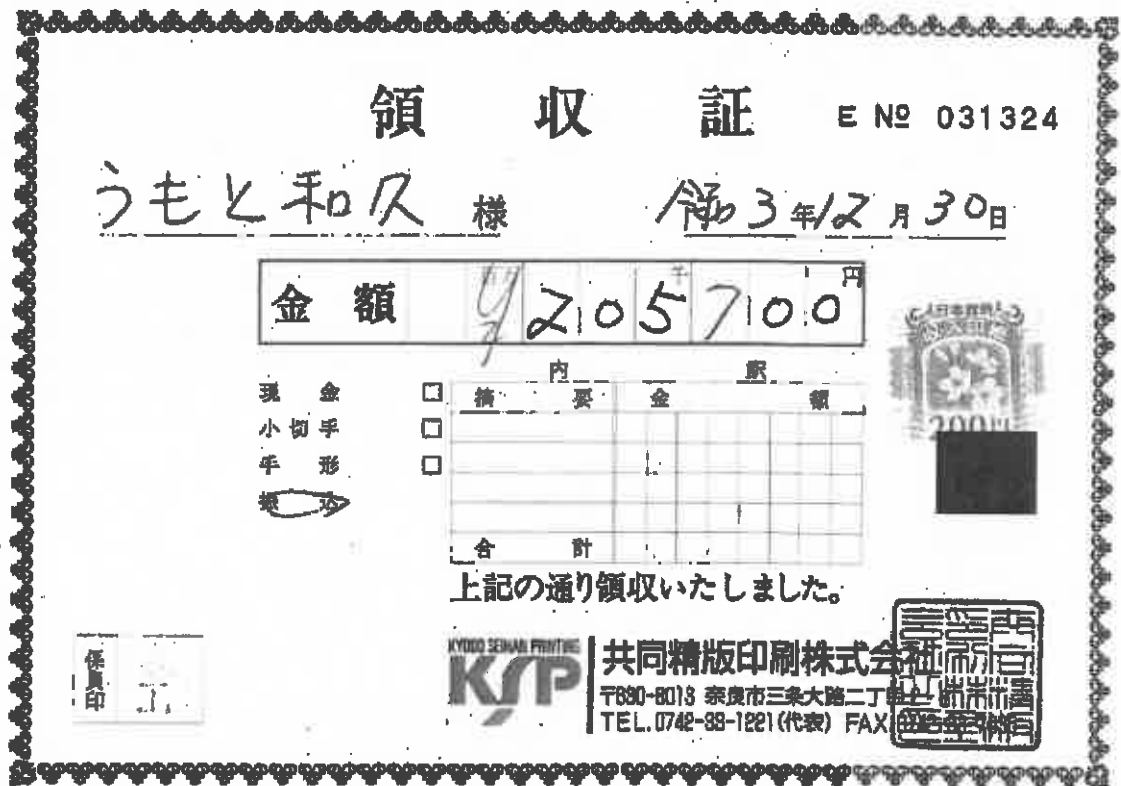 領収証 E № 031324
うもと和久 様 令和3年12月30日
金額 ¥205700円
千
内訳
摘要 金額
現金 □
小切手 □
手形 □
振込
合計
上記の通り領収いたしました。
日本政府
200円
係員印
KYODO SEIHAN PRINTING
KSP
共同精版印刷株式会社
〒630-8013 奈良市三条大路二丁目
TEL.0742-33-1221(代表) FAX